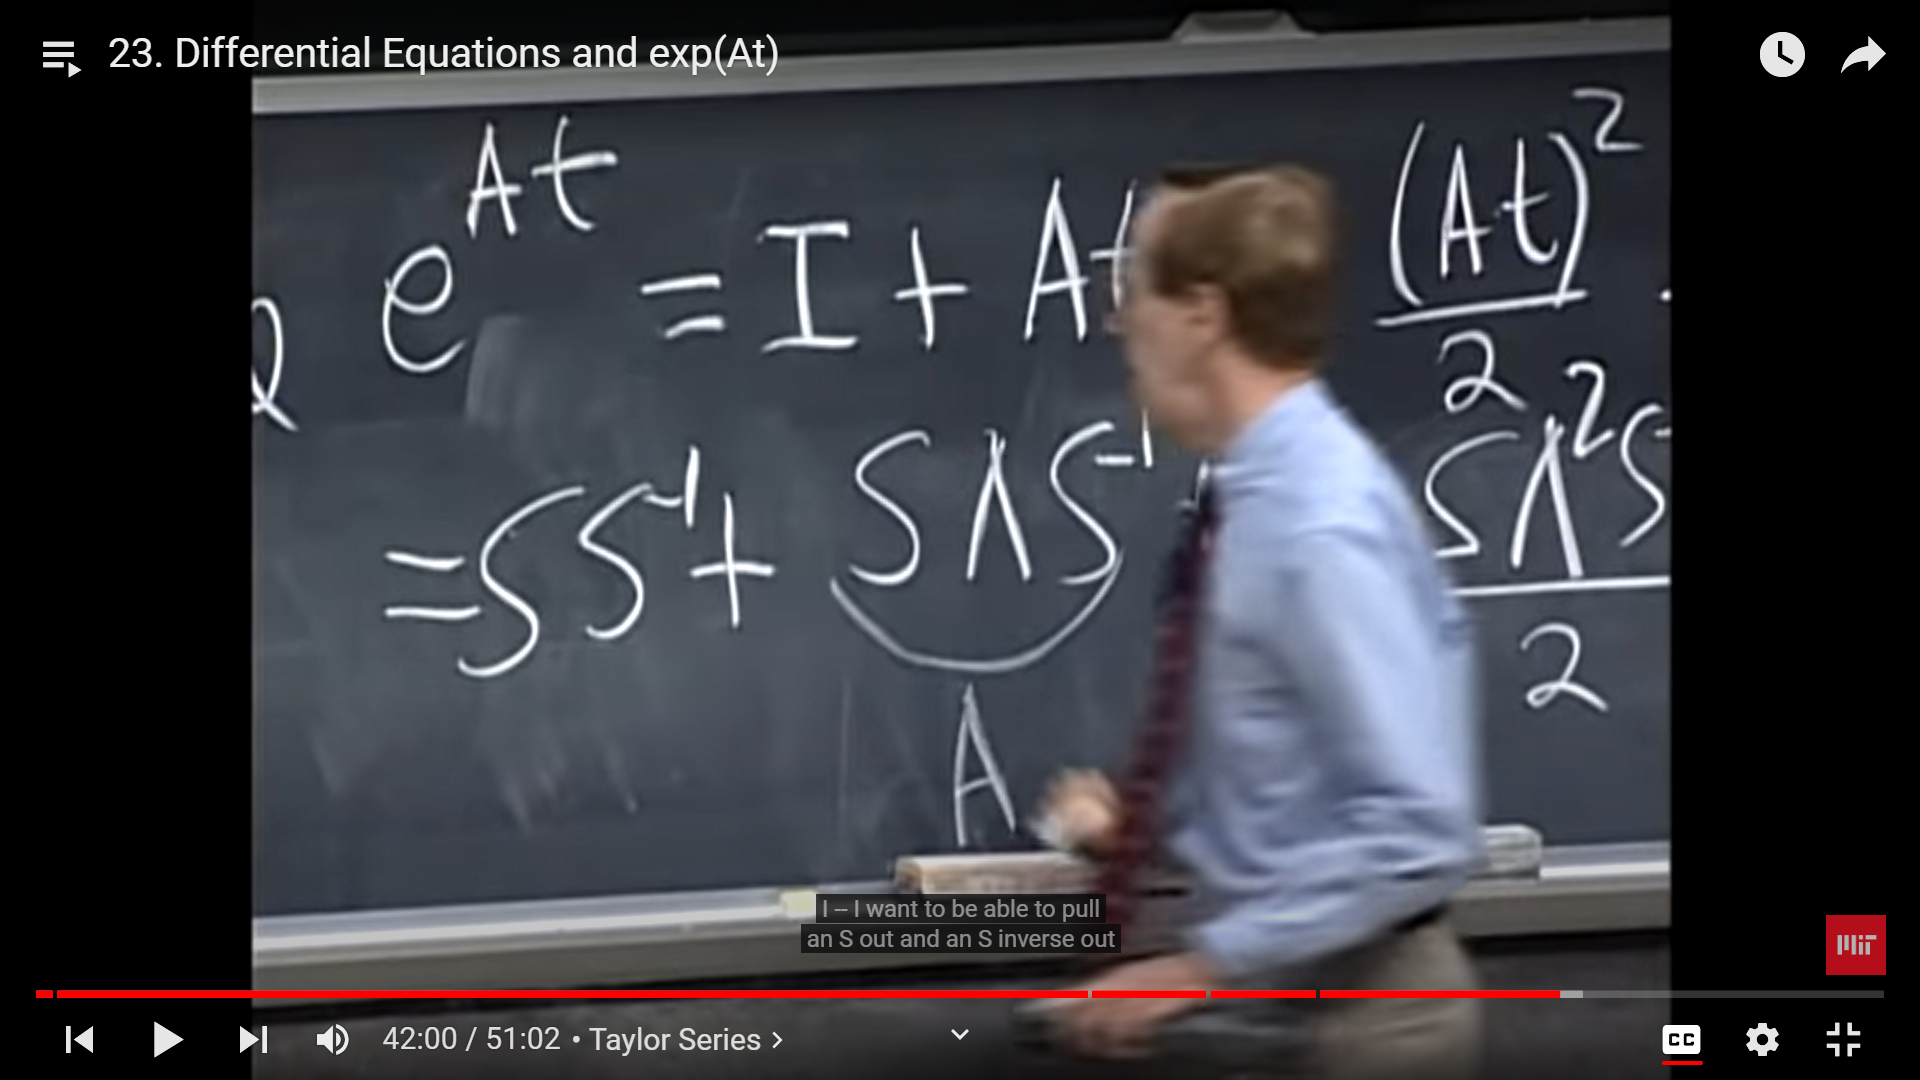 23. Differential Equations and exp(At)
e^{At} = I + At (At)^2/2
= SS^{-1} + SΛS^{-1} SΛ^2S^-/2
A
I -- I want to be able to pull
an S out and an S inverse out
MIT
42:00 / 51:02 • Taylor Series >
CC